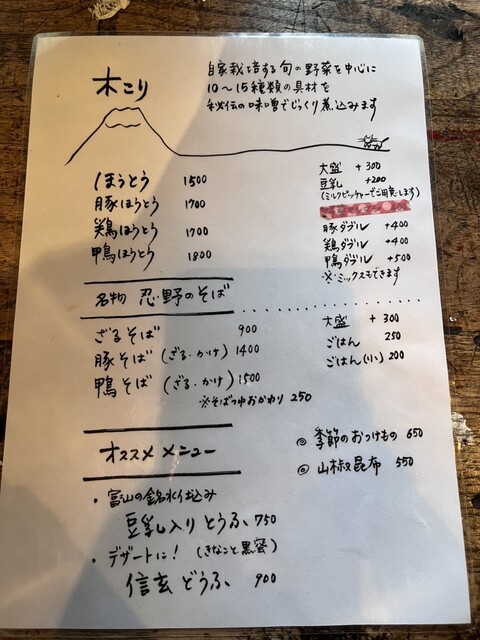 木こり
自家栽培する旬の野菜を中心に
10～15種類の具材を
秘伝の味噌でじっくり煮込みます
ほうとう 1500
豚ほうとう 1700
鶏ほうとう 1700
鴨ほうとう 1800
大盛 +300
豆乳 +200
(ミルクピッチャーでご用意します)
豚ダブル +400
鶏ダブル +400
鴨ダブル +500
※ミックスもできます
名物 忍野のそば
ざるそば 900
豚そば (ざる・かけ) 1400
鴨そば (ざる・かけ) 1500
※そばつゆおかわり 250
大盛 +300
ごはん 250
ごはん(小) 200
オススメメニュー
◎季節のおつけもの 650
◎山椒昆布 550
・富山の銘水仕込み
豆乳入りとうふ 750
・デザートに! (きなこと黒蜜)
信玄どうふ 900